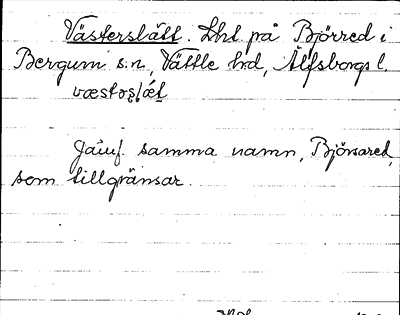 Västerslätt. Lht på Björred i
Bergum sn, Vättle hd, Älfsborgs l.
Jämf. samma namn, Björsared,
som tillgränsar.